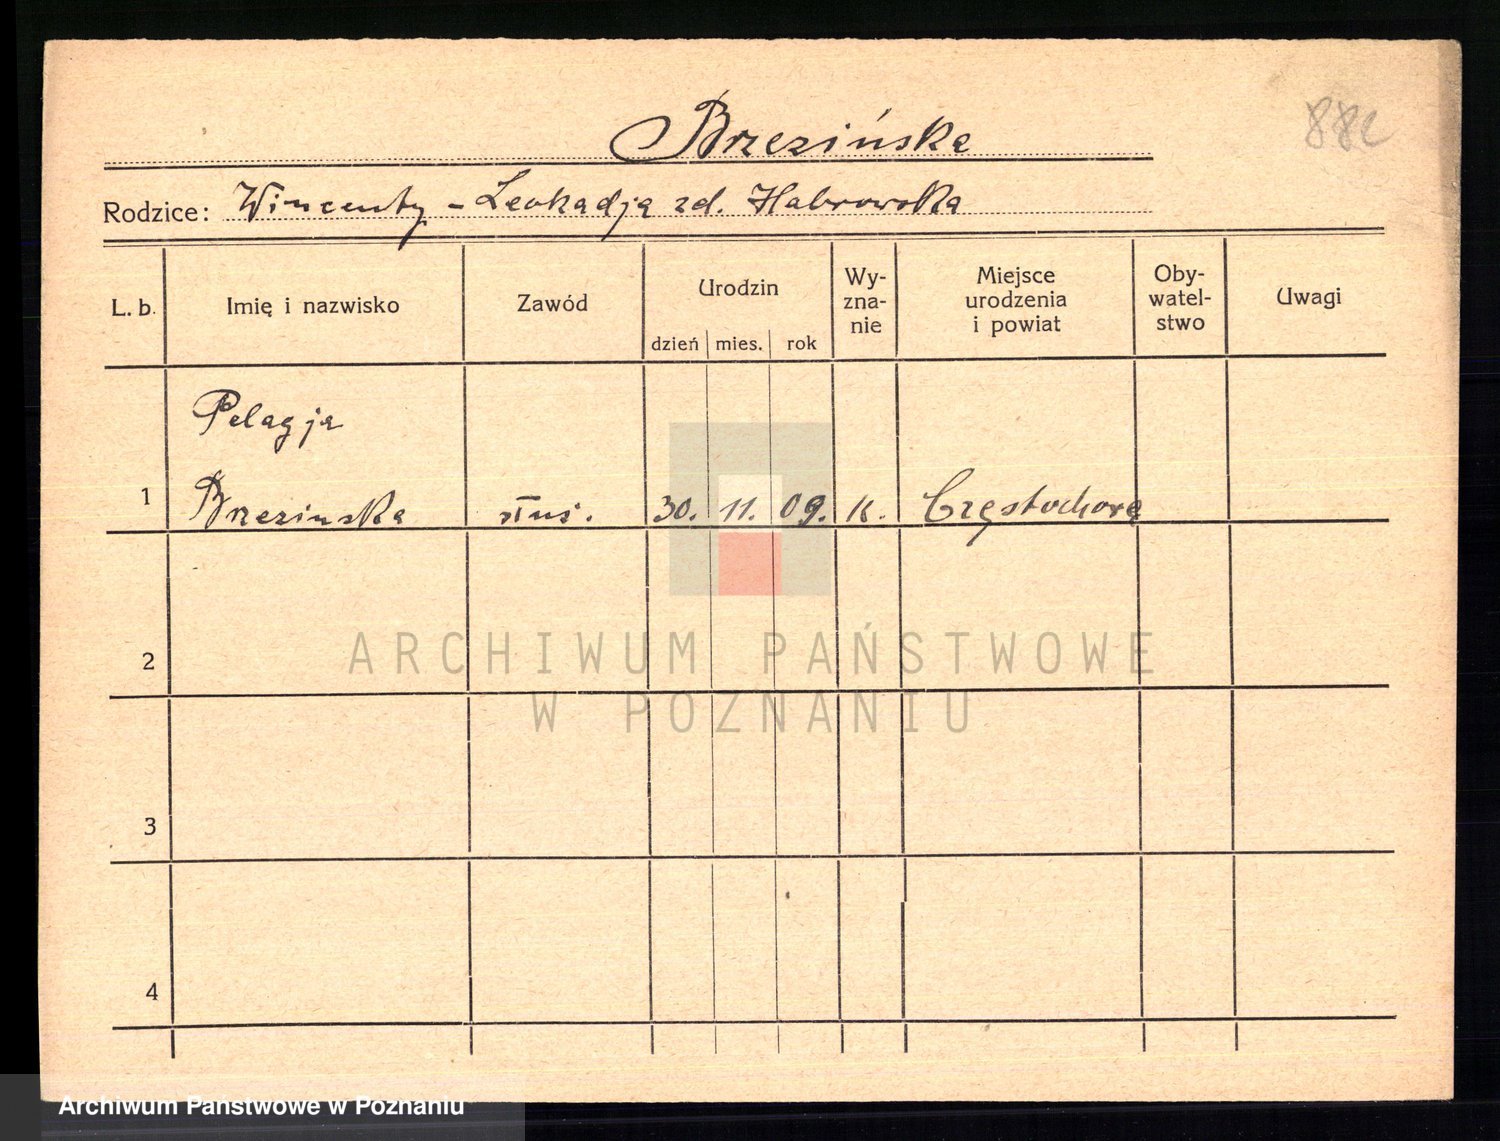 Brzezińska
882
Rodzice: Wincenty - Leokadja zd. Habrowska
L. b. Imię i nazwisko Zawód Urodzin dzień mies. rok Wyznanie Miejsce urodzenia i powiat Obywatelstwo Uwagi
Pelagja
1 Brzezinska słuś. 30. 11. 09. K. Częstochowa
2
ARCHIWUM PAŃSTWOWE
W POZNANIU
3
4
Archiwum Państwowe w Poznaniu